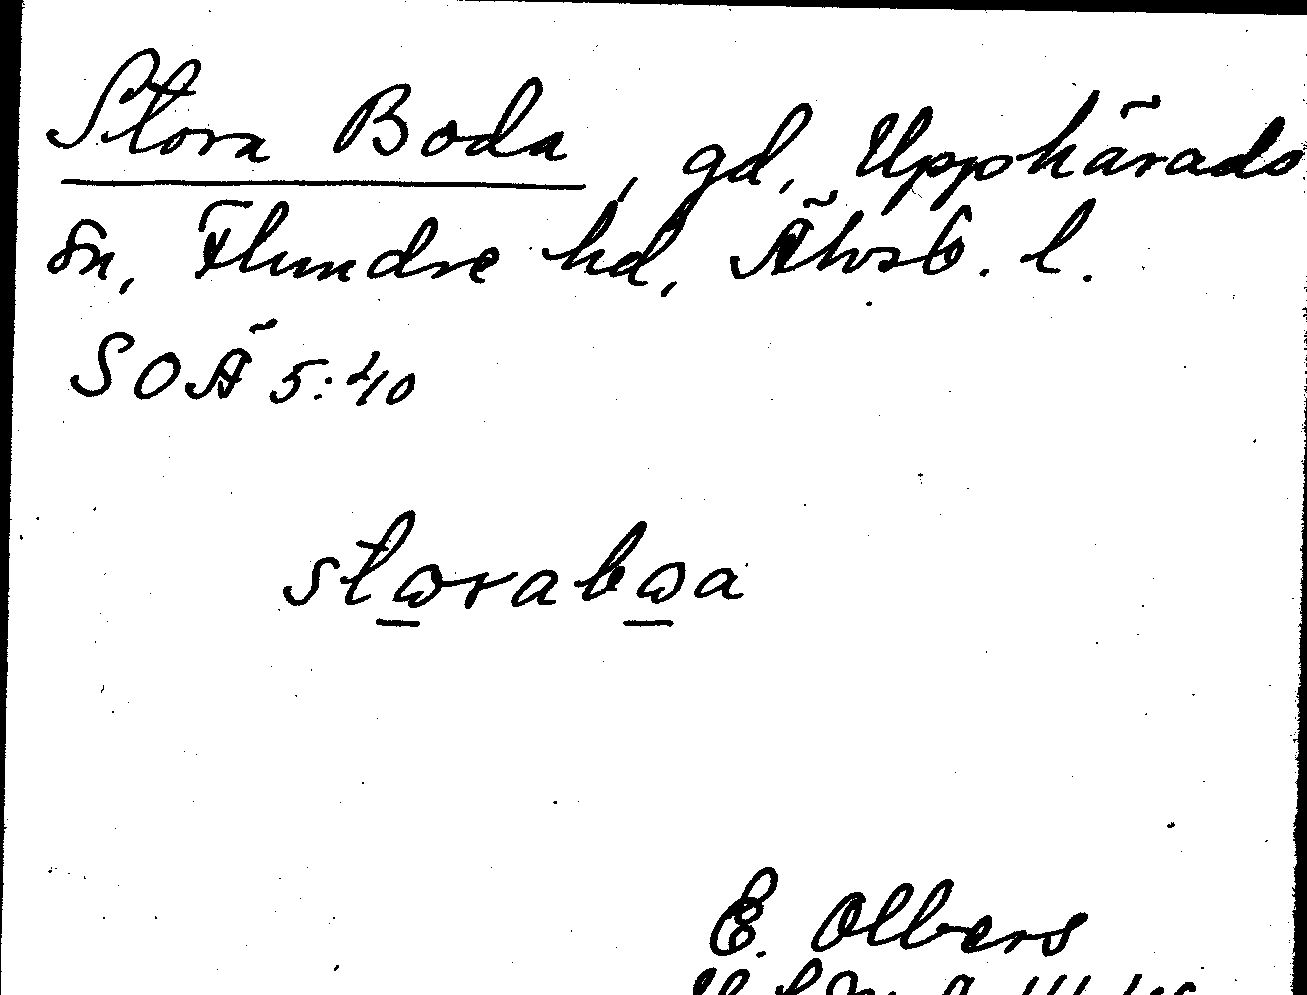 Stora Boda, gd, Upphärads
sn, Flundre hd, Älvsb. l.
SOÄ 5:40
stωrabωa
E. Olbers